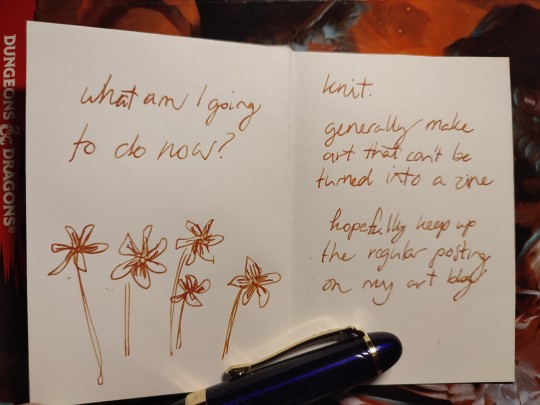 DUNGEONS & DRAGONS®
what am I going
to do now?
knit.
generally make
art that can't be
turned into a zine
hopefully keep up
the regular posting
on my art blog